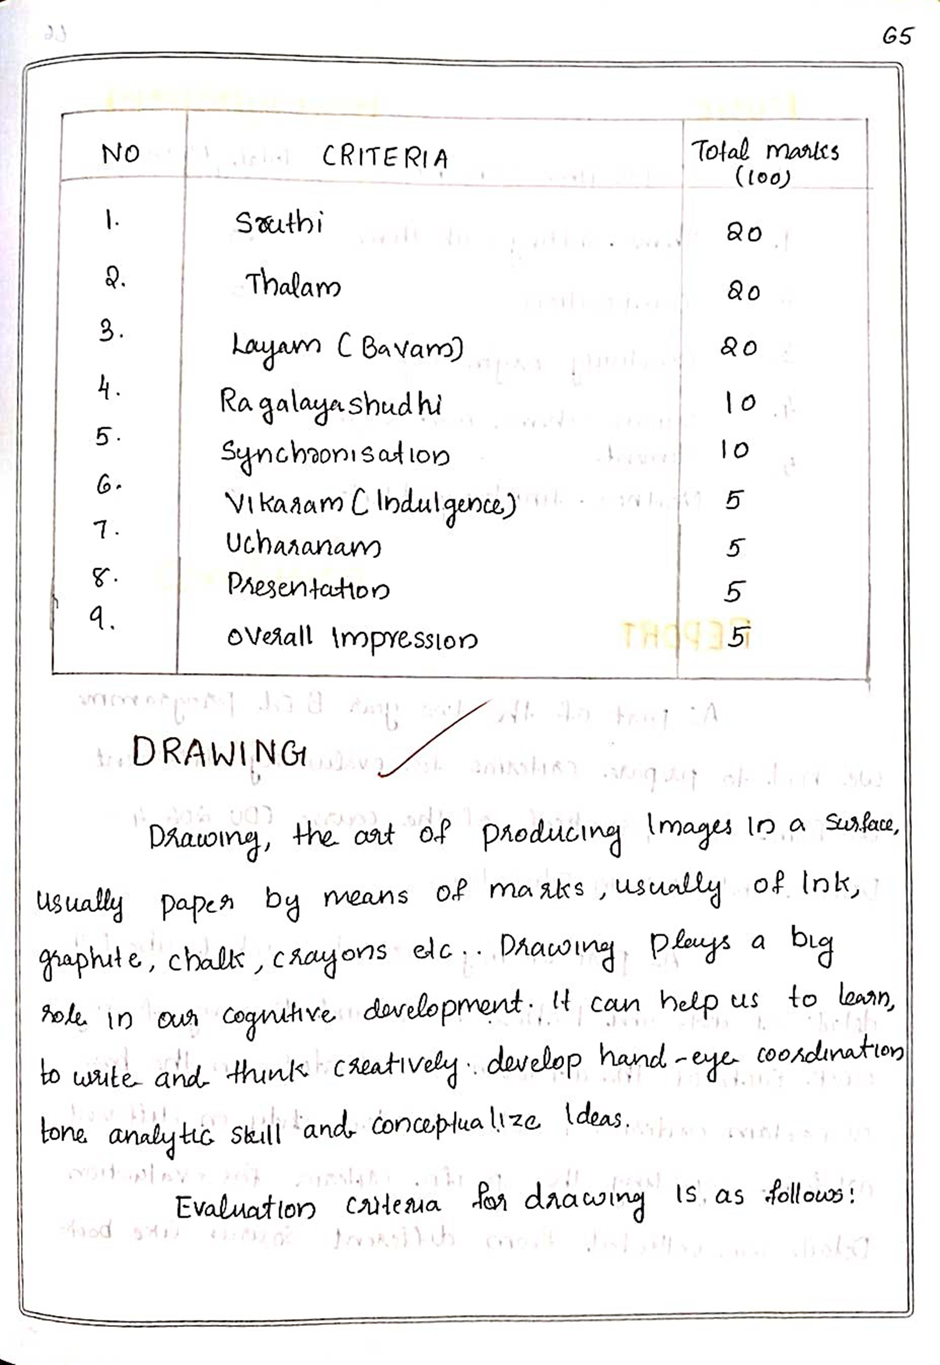 65
NO CRITERIA Total marks (100)
1. Sruthi 20
2. Thalam 20
3. Layam (Bavam) 20
4. Ragalayashudhi 10
5. Synchronisation 10
6. Vikaram (Indulgence) 5
7. Ucharanam 5
8. Presentation 5
9. Overall Impression 5
DRAWING
Drawing, the art of producing Images in a surface,
usually paper by means of marks, usually of Ink,
graphite, chalk, crayons etc.. Drawing plays a big
role in our cognitive development. It can help us to learn,
to write and think creatively. develop hand-eye coordination
tone analytic skill and conceptualize Ideas.
Evaluation criteria for drawing is as follows: